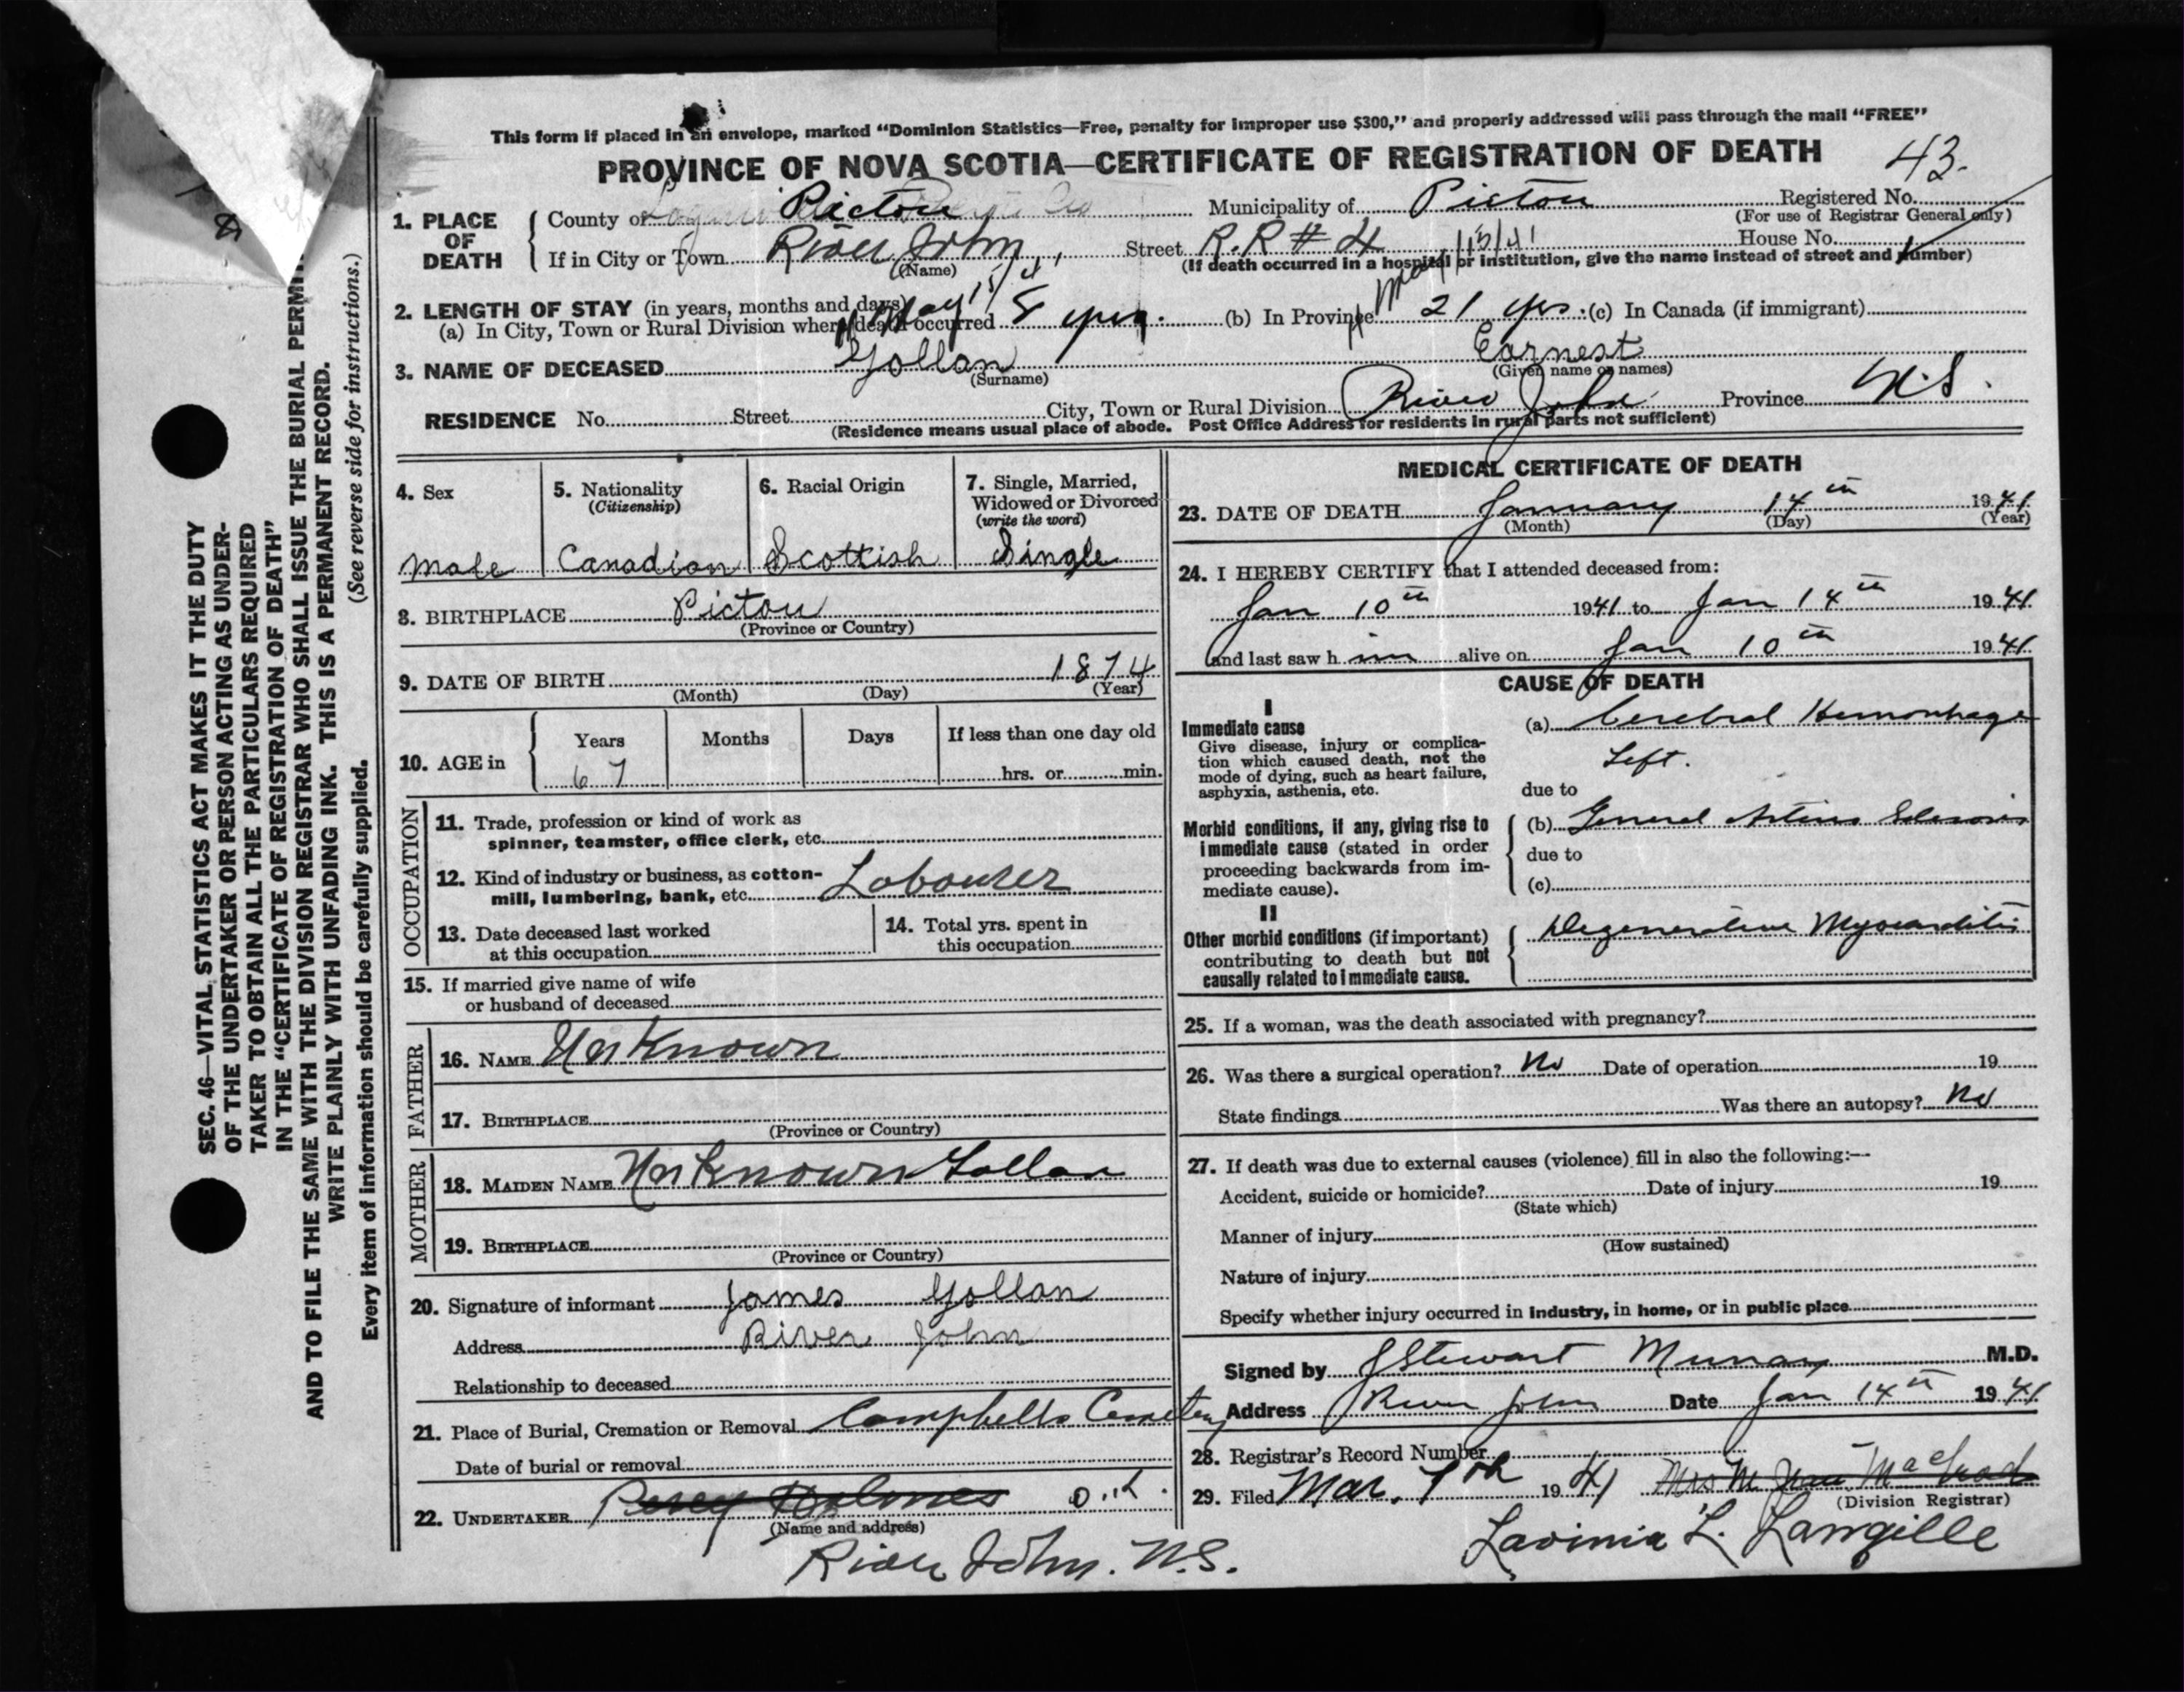 This form if placed in an envelope, marked "Dominion Statistics—Free, penalty for improper use $300," and properly addressed will pass through the mail "FREE"
PROVINCE OF NOVA SCOTIA—CERTIFICATE OF REGISTRATION OF DEATH
43.
1. PLACE OF DEATH
County of Pictou Municipality of Pictou Registered No.
(For use of Registrar General only)
If in City or Town River John Street R.R # 4 House No.
(Name) (If death occurred in a hospital or institution, give the name instead of street and number)
May 15/41
May 15/41
2. LENGTH OF STAY (in years, months and days)
(a) In City, Town or Rural Division where death occurred 8 yrs. (b) In Province 21 yrs. (c) In Canada (if immigrant)
3. NAME OF DECEASED Gollan Earnest
(Surname) (Given name or names)
RESIDENCE No. Street City, Town or Rural Division River John Province N.S.
(Residence means usual place of abode. Post Office Address for residents in rural parts not sufficient)
4. Sex
Male
5. Nationality
(Citizenship)
Canadian
6. Racial Origin
Scottish
7. Single, Married,
Widowed or Divorced
(write the word)
Single
8. BIRTHPLACE Pictou
(Province or Country)
9. DATE OF BIRTH 1874
(Month) (Day) (Year)
10. AGE in
Years Months Days If less than one day old
67 hrs. or min.
OCCUPATION
11. Trade, profession or kind of work as
spinner, teamster, office clerk, etc.
12. Kind of industry or business, as cotton-
mill, lumbering, bank, etc. Labourer
13. Date deceased last worked
at this occupation
14. Total yrs. spent in
this occupation
15. If married give name of wife
or husband of deceased
FATHER
16. NAME Unknown
17. BIRTHPLACE
(Province or Country)
MOTHER
18. MAIDEN NAME Unknown Gollan
19. BIRTHPLACE
(Province or Country)
20. Signature of informant James Gollan
Address River John
Relationship to deceased
21. Place of Burial, Cremation or Removal Campbells Cemetery
Date of burial or removal
22. UNDERTAKER Percy Holmes
(Name and address)
River John. N.S.
MEDICAL CERTIFICATE OF DEATH
23. DATE OF DEATH January 14th 1941
(Month) (Day) (Year)
24. I HEREBY CERTIFY that I attended deceased from:
Jan 10th 1941 to Jan 14th 1941
and last saw h im alive on Jan 10th 1941
CAUSE OF DEATH
I
Immediate cause
Give disease, injury or complica-
tion which caused death, not the
mode of dying, such as heart failure,
asphyxia, asthenia, etc.
(a) Cerebral Hemorrhage
Left.
due to
Morbid conditions, if any, giving rise to
immediate cause (stated in order
proceeding backwards from im-
mediate cause).
(b) General Arterio Sclerosis
due to
(c)
II
Other morbid conditions (if important)
contributing to death but not
causally related to immediate cause.
Degenerative Myocarditis
25. If a woman, was the death associated with pregnancy?
26. Was there a surgical operation? No Date of operation 19
State findings Was there an autopsy? No
27. If death was due to external causes (violence) fill in also the following:—
Accident, suicide or homicide? Date of injury 19
(State which)
Manner of injury
(How sustained)
Nature of injury
Specify whether injury occurred in industry, in home, or in public place
Signed by J Stewart Murray M.D.
Address River John Date Jan 14th 1941
28. Registrar's Record Number
29. Filed Mar. 7th 1941
(Division Registrar)
Lavinia L. Langille
SEC. 46—VITAL STATISTICS ACT MAKES IT THE DUTY
OF THE UNDERTAKER OR PERSON ACTING AS UNDER-
TAKER TO OBTAIN ALL THE PARTICULARS REQUIRED
IN THE "CERTIFICATE OF REGISTRATION OF DEATH"
AND TO FILE THE SAME WITH THE DIVISION REGISTRAR WHO SHALL ISSUE THE BURIAL
WRITE PLAINLY WITH UNFADING INK. THIS IS A PERMANENT RECORD.
Every item of information should be carefully supplied. (See reverse side for instructions.)